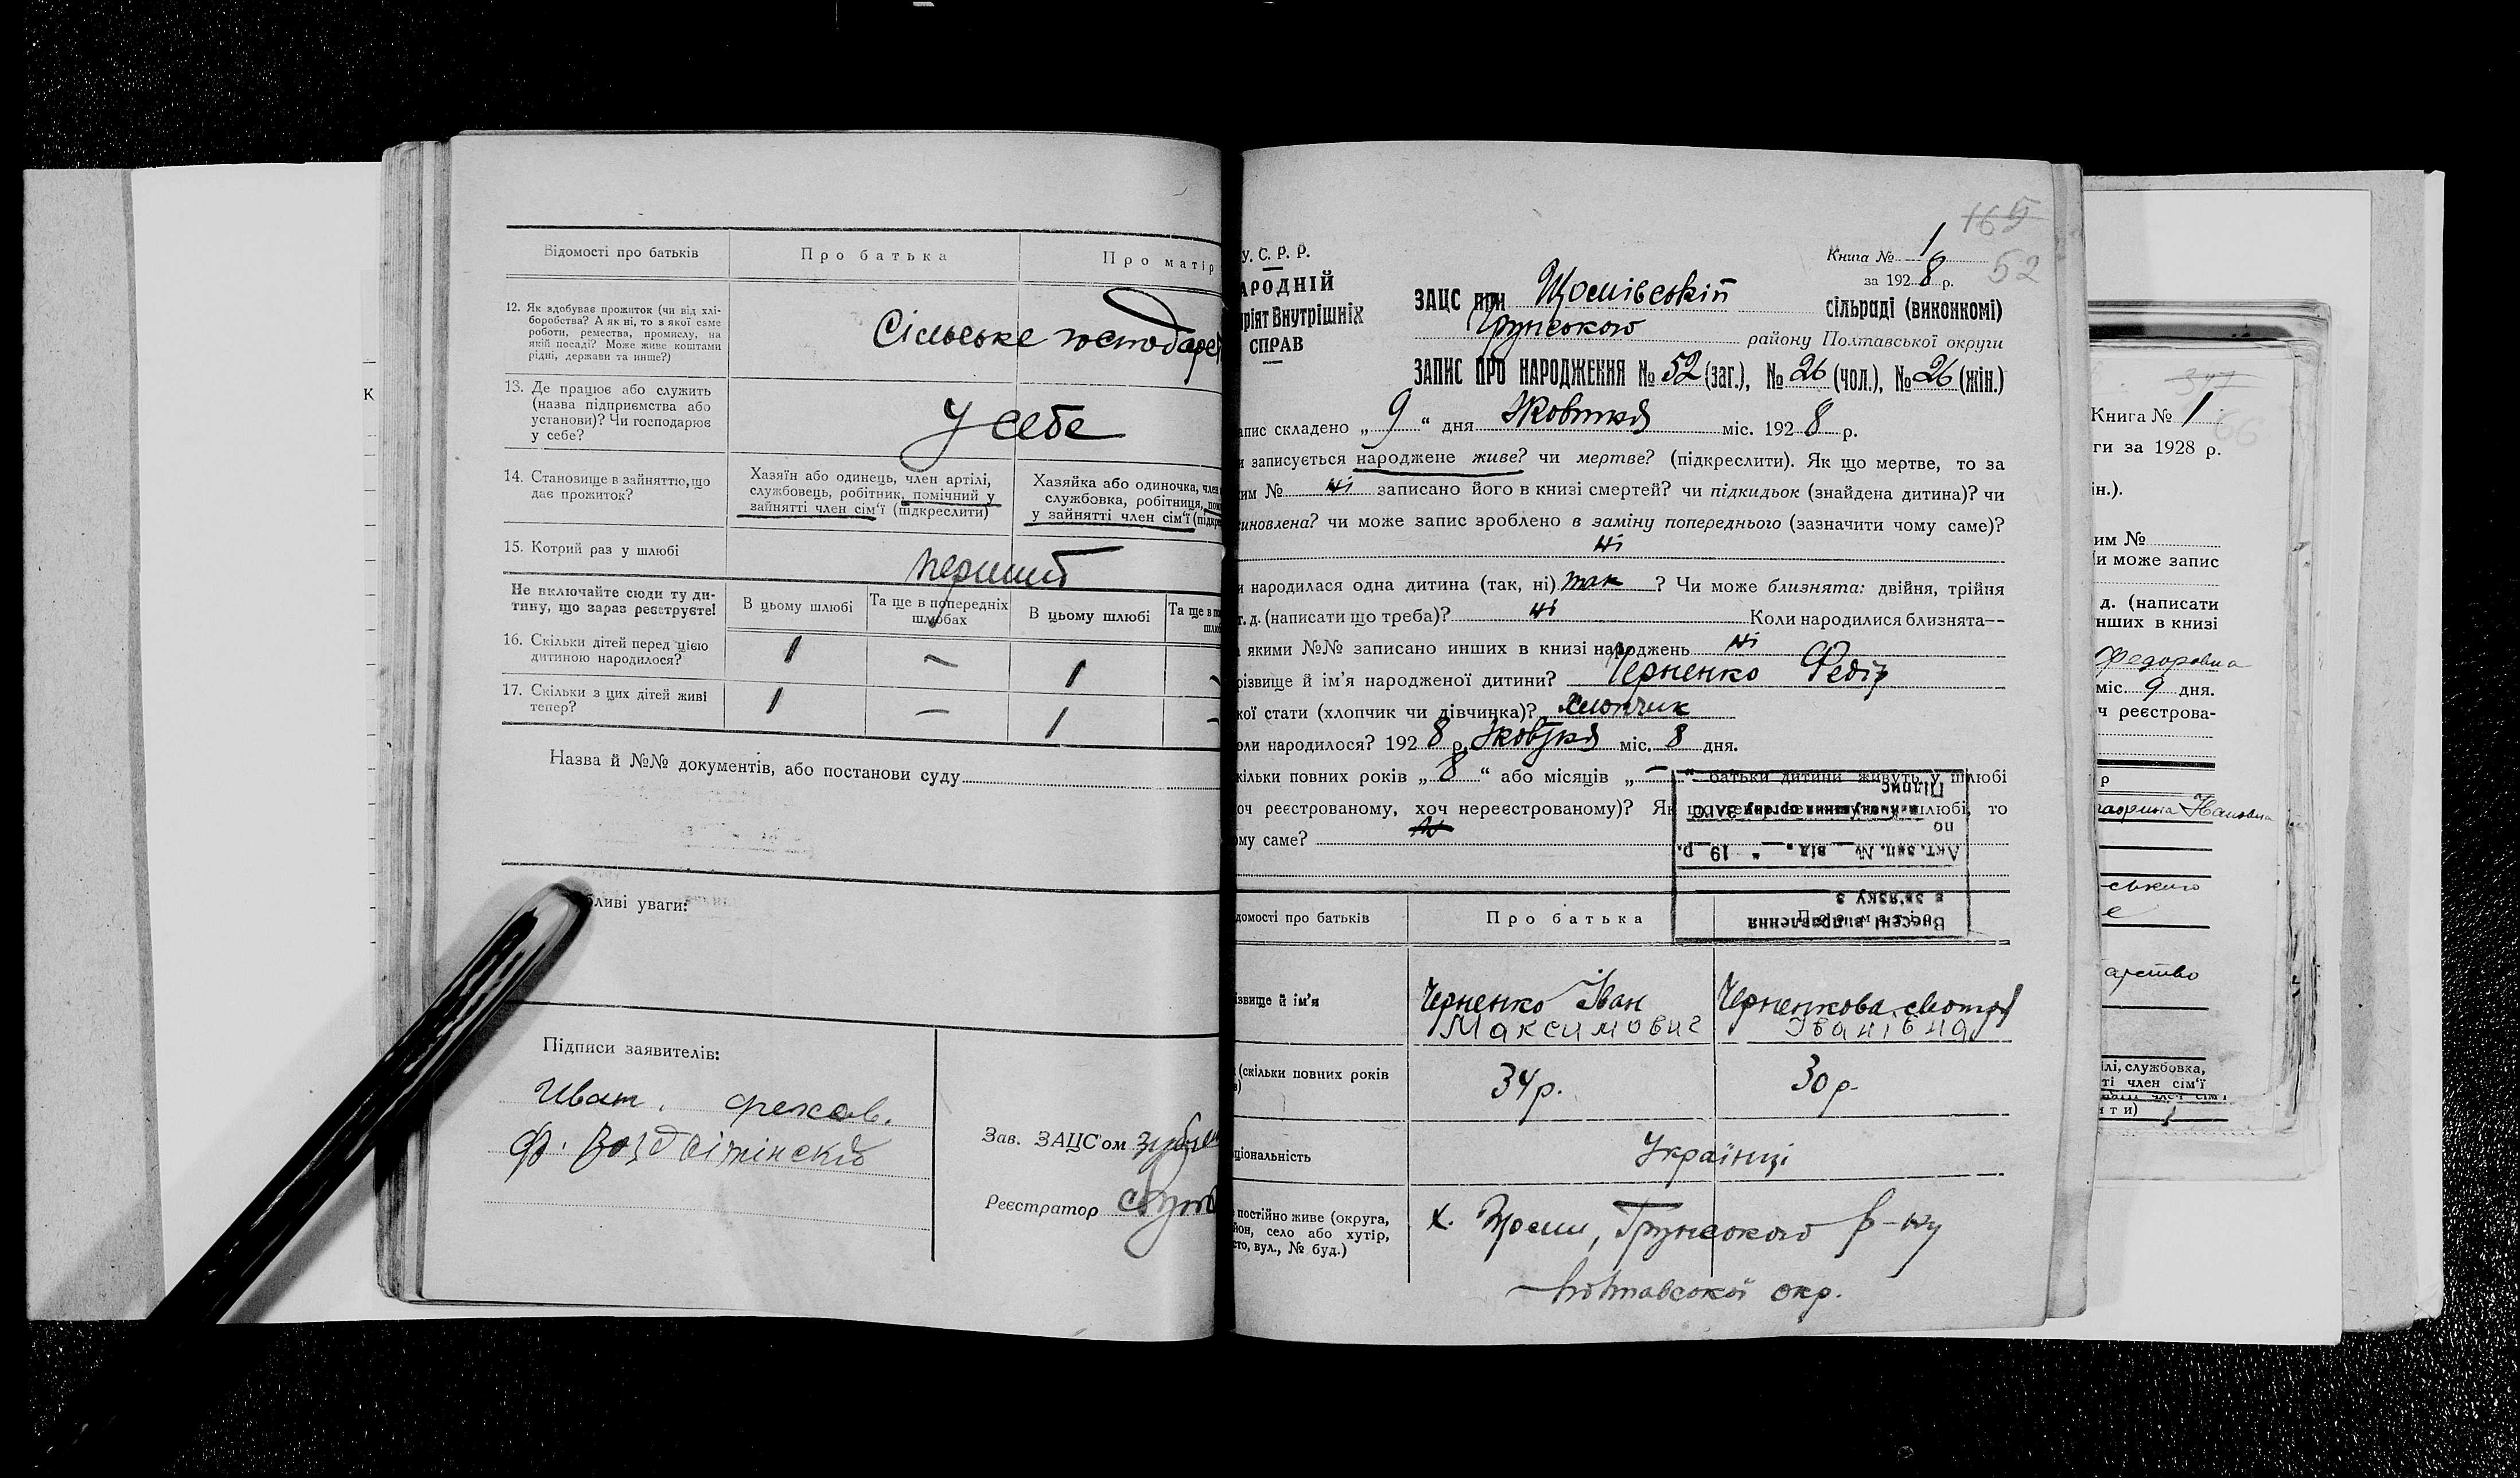 Відомості про батьків
Про батька
Про матір
12. Як здобуває прожиток (чи від хлі-
боробства? А як ні, то з якої саме
роботи, ремества, промислу, на
якій посаді? Може живе коштами
рідні, держави та инше?)
Сільське господарст
13. Де працює або служить
(назва підприємства або
установи)? Чи господарює
у себе?
У себе
14. Становище в зайняттю, що
дає прожиток?
Хазяїн або одинець, член артілі,
службовець, робітник, помічний у
зайнятті член сім'ї (підкреслити)
Хазяйка або одиночка, член
службовка, робітниця, пом
у зайнятті член сім'ї (підкре
15. Котрий раз у шлюбі
перший
Не включайте сюди ту ди-
тину, що зараз реєструєте!
В цьому шлюбі
Та ще в попередніх
шлюбах
В цьому шлюбі
Та ще в по
шлю
16. Скільки дітей перед цією
дитиною народилося?
1 — 1
17. Скільки з цих дітей живі
тепер?
1 — 1
Назва й №№ документів, або постанови суду
бливі уваги:
Підписи заявителів:
Зав. ЗАЦС'ом
Реєстратор
К
165
52
У. С. Р. Р.
АРОДНІЙ
ріят Внутрішніх
СПРАВ
Книга № 1
за 1928 р.
ЗАЦС при сільраді (виконкомі)
Грунського району Полтавської округи
ЗАПИС ПРО НАРОДЖЕННЯ № 52 (заг.), № 26 (чол.), № 26 (жін.)
апис складено „ 9 " дня Жовтня міс. 1928 р.
и записується народжене живе? чи мертве? (підкреслити). Як що мертве, то за
им № ні записано його в книзі смертей? чи підкидьок (знайдена дитина)? чи
иновлена? чи може запис зроблено в заміну попереднього (зазначити чому саме)?
ні
и народилася одна дитина (так, ні) так ? Чи може близнята: двійня, трійня
т. д. (написати що треба)? ні Коли народилися близнята—
якими №№ записано инших в книзі народжень ні
різвище й ім'я народженої дитини? Черненко Федір
кої стати (хлопчик чи дівчинка)? хлопчик
оли народилося? 1928 р. Жовтня міс. 8 дня.
кільки повних років „ 8 " або місяців „ — " батьки дитини живуть у шлюбі
оч реєстрованому, хоч нереєстрованому)? Як шлюбі, то
ому саме?
Підпис
ЗАГС
по
Акт. зап. № від „ " 19 р.
в зв'язку з
Внесені виправлення
домості про батьків
Про батька
ізвище й ім'я
Черненко Іван
Максимович
Черненкова Мотря
Іванівна
(скільки повних років
34 р.
30 р.
ціональність
Українці
постійно живе (округа,
йон, село або хутір,
сто, вул., № буд.)
х. Грунського р-ну
Полтавської окр.
347
Книга № 1
66
ги за 1928 р.
ін.).
им №
Чи може запис
д. (написати
нших в книзі
Федоровна
міс. 9 дня.
ч реєстрова-
р
Ивановна
ського
е
арство
ілі, службовка,
ті член сім'ї